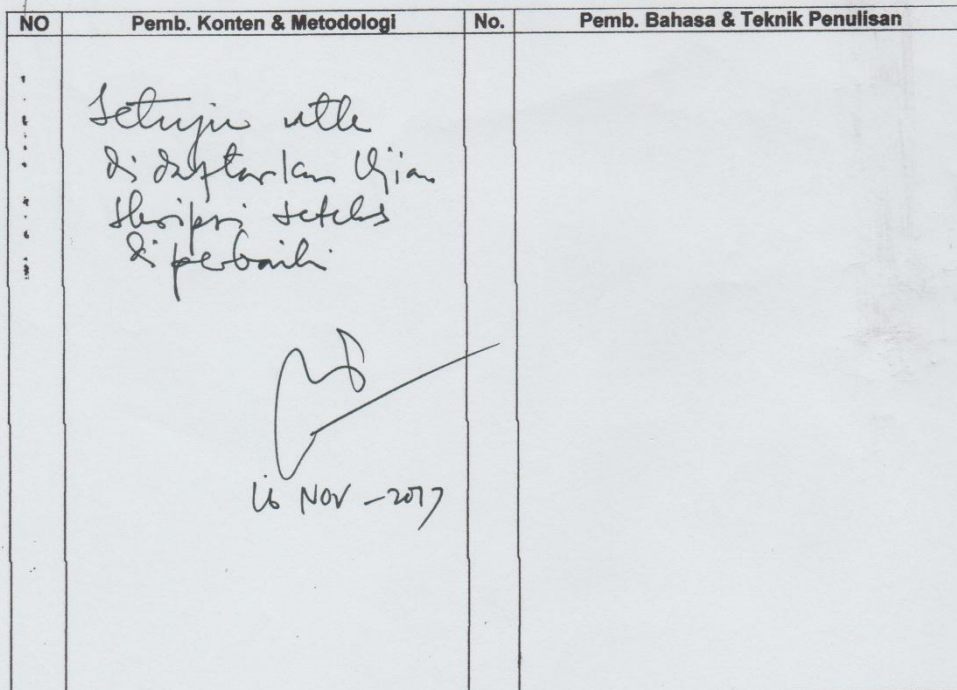 NO Pemb. Konten & Metodologi No. Pemb. Bahasa & Teknik Penulisan
Setuju utk
didaftarkan Ujian
skripsi setelah
diperbaiki
16 NOV - 2017